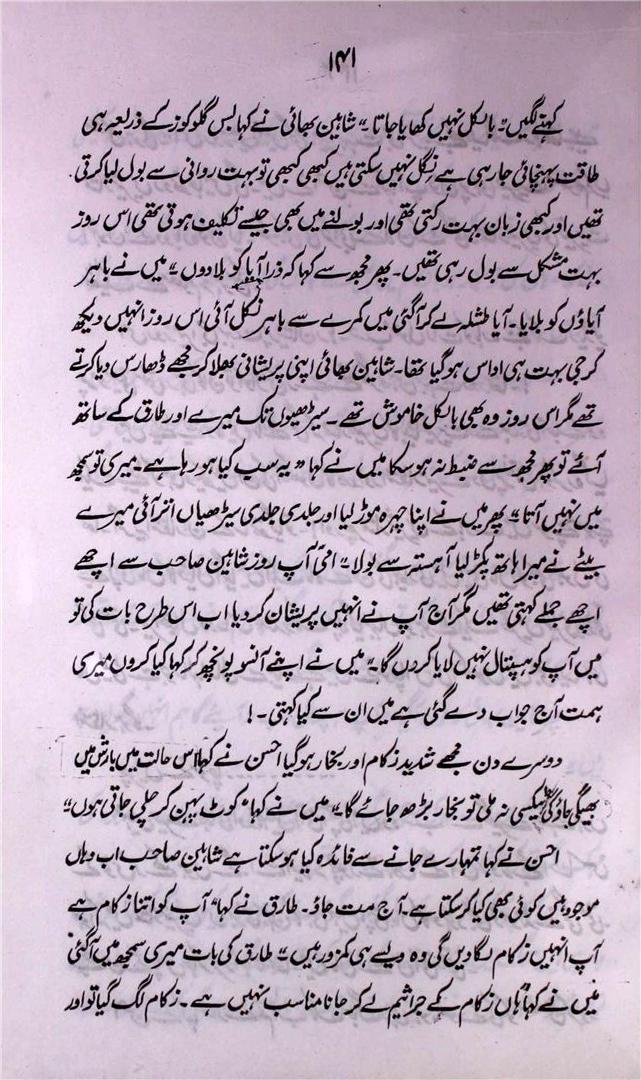 ۱۴۱
کہنے لگیں" بالکل نہیں کھایا جاتا " شاہین بھائی نے کہا بس گلوکوز کے ذریعہ ہی
طاقت پہنچائی جا رہی ہے نِگل نہیں سکتی ہیں کبھی کبھی تو بہت روانی سے بول لیا کرتی
تھیں اور کبھی زبان بہت رکتی تھی اور بولنے میں بھی جیسے تکلیف ہوتی تھی اس روز
بہت مشکل سے بول رہی تھیں۔ پھر مجھ سے کہا کہ ذرا آیا کو بلا دوں " میں نے باہر
آیاؤں کو بلایا۔ آیا طشلہ لے کر آ گئی میں کمرے سے باہر نکل آئی اس روز انہیں دیکھ
کر جی بہت ہی اداس ہو گیا تھا۔ شاہین بھائی اپنی پریشانی بھلا کر مجھے ڈھارس دیا کرتے
تھے مگر اس روز وہ بھی بالکل خاموش تھے۔ سیڑھیوں تک میرے اور طارق کے ساتھ
آئے تو پھر مجھ سے ضبط نہ ہو سکا میں نے کہا " یہ سب کیا ہو رہا ہے۔ میری تو سمجھ
میں نہیں آتا " پھر میں نے اپنا چہرہ موڑ لیا اور جلدی جلدی سیڑھیاں اتر آئی میرے
بیٹے نے میرا ہاتھ پکڑ لیا آہستہ سے بولا " امّی آپ روز شاہین صاحب سے اچھے
اچھے جملے کہتی تھیں مگر آج آپ نے انہیں پریشان کر دیا اب اس طرح بات کی تو
میں آپ کو ہسپتال نہیں لایا کروں گا۔" میں نے اپنے آنسو پونچھ کر کہا کیا کروں میری
ہمت آج جواب دے گئی ہے میں ان سے کیا کہتی۔!
دوسرے دن مجھے شدید زکام اور بخار ہو گیا احسن نے کہا اس حالت میں بارش میں
بھیگی جاؤ گی ٹیکسی نہ ملی تو بخار بڑھ جائے گا " میں نے کہا " کوٹ پہن کر چلی جاتی ہوں "
احسن نے کہا تمہارے جانے سے فائدہ کیا ہو سکتا ہے شاہین صاحب اب وہاں
موجود ہیں کوئی بھی کیا کر سکتا ہے۔ آج مت جاؤ۔ طارق نے کہا " آپ کو اتنا زکام ہے
آپ انہیں زکام لگا دیں گی وہ ویسے ہی کمزور ہیں " طارق کی بات میری سمجھ میں آ گئی
میں نے کہا ہاں زکام کے جراثیم لے کر جانا مناسب نہیں ہے۔ زکام لگ گیا تو اور